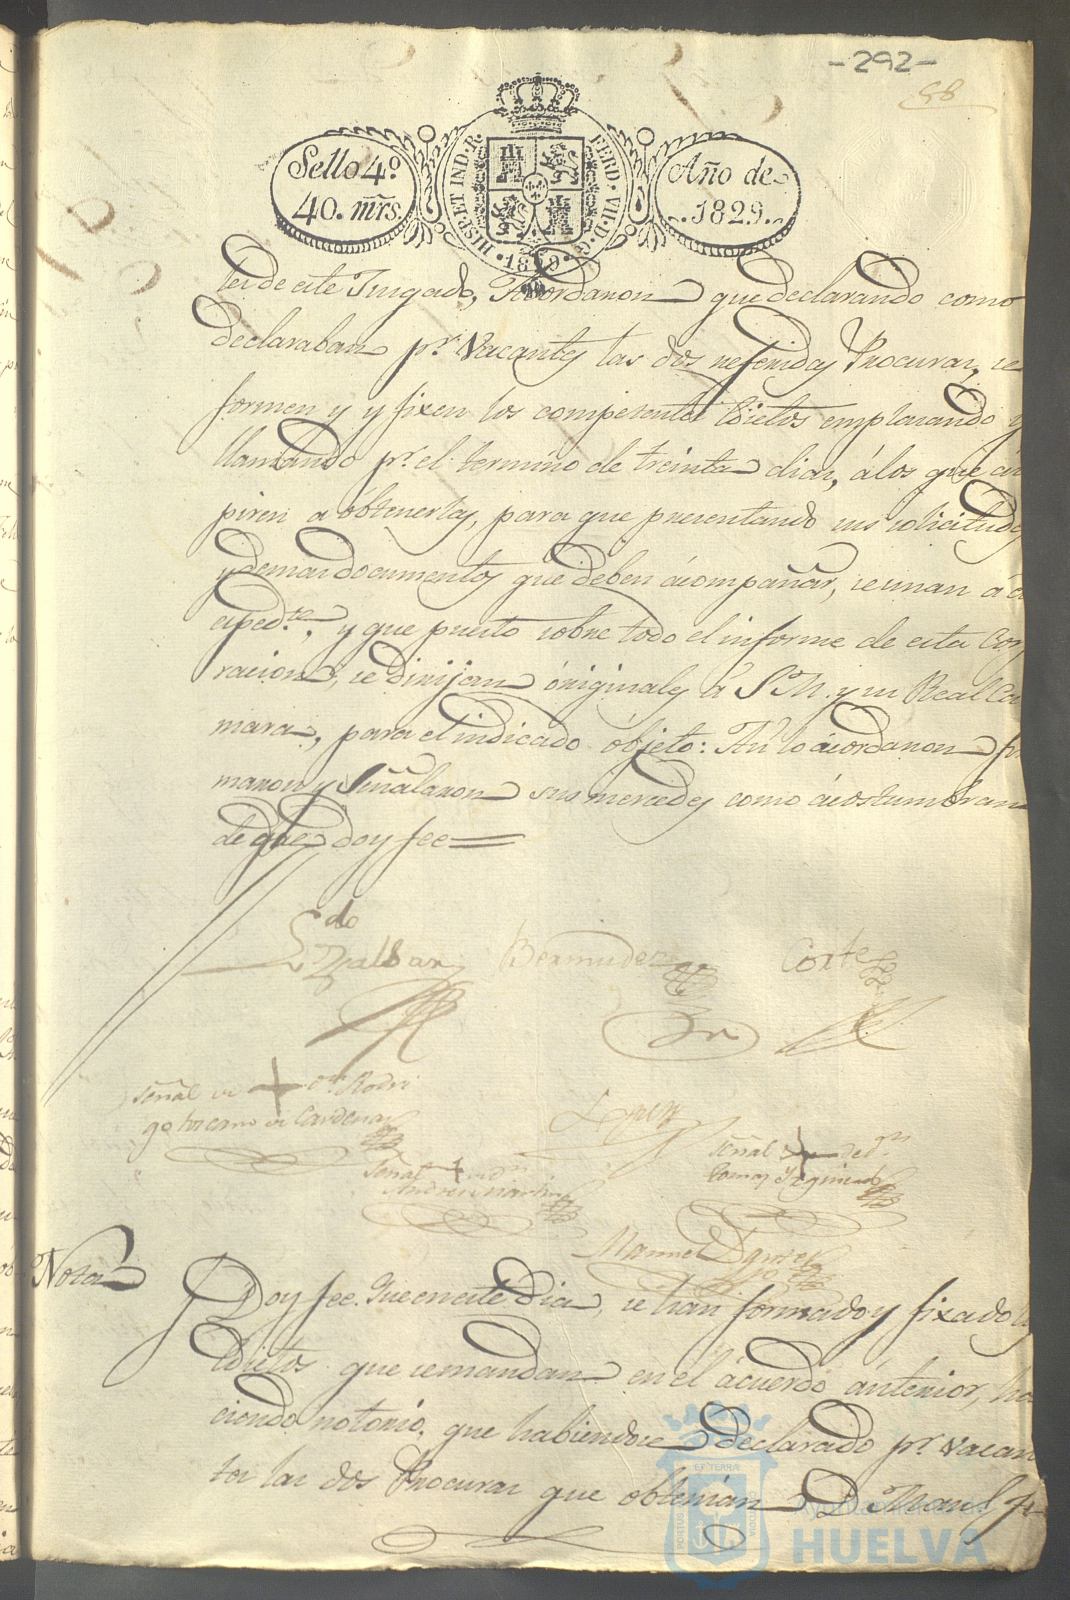 -292-
58
Sello 4.º
40. mrs.
HISP. ET IND. R.
FERD. VII. D. G.
Año de
1829.
·1829·
tes de este Juzgado, Acordaron que declarando como
declaraban pr. Vacantes las dos referidas Procuras, se
formen y y fixen los competentes Edictos emplazando y
llamando pr. el termino de treinta dias, á los que as
piren a obtenerlas, para que presentando sus solicitudes
y demas documentos que deben acompañar, se unan á
exped.te, y que puesto sobre todo el informe de esta Cor
racion, se dirijan originales á S. M. y su Real Ca
mara, para el indicado objeto: Asi lo ácordaron fir
maron y Señalaron sus mercedes como ácostumbran
de que doy fee
Ldo
Bermudez
Cortes
Señal de + Dn. Rodri
go toscano de Cardenas
Lopez
Señal + de Dn
Señal + de Dn
Andres Martin
Manuel
Nota
Doy fee. Que en este Dia, se han formado y fixado l
Edictos que se mandan en el ácuerdo ánterior, ha
ciendo notorio, que habiendose declarado pr. vacan
tes las dos Procuras que obtenian D. Manl. F
PORTUS
ET TERRAE
CUSTODIA
Ayuntamiento de
HUELVA